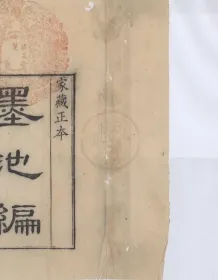 家藏正本
墨池編